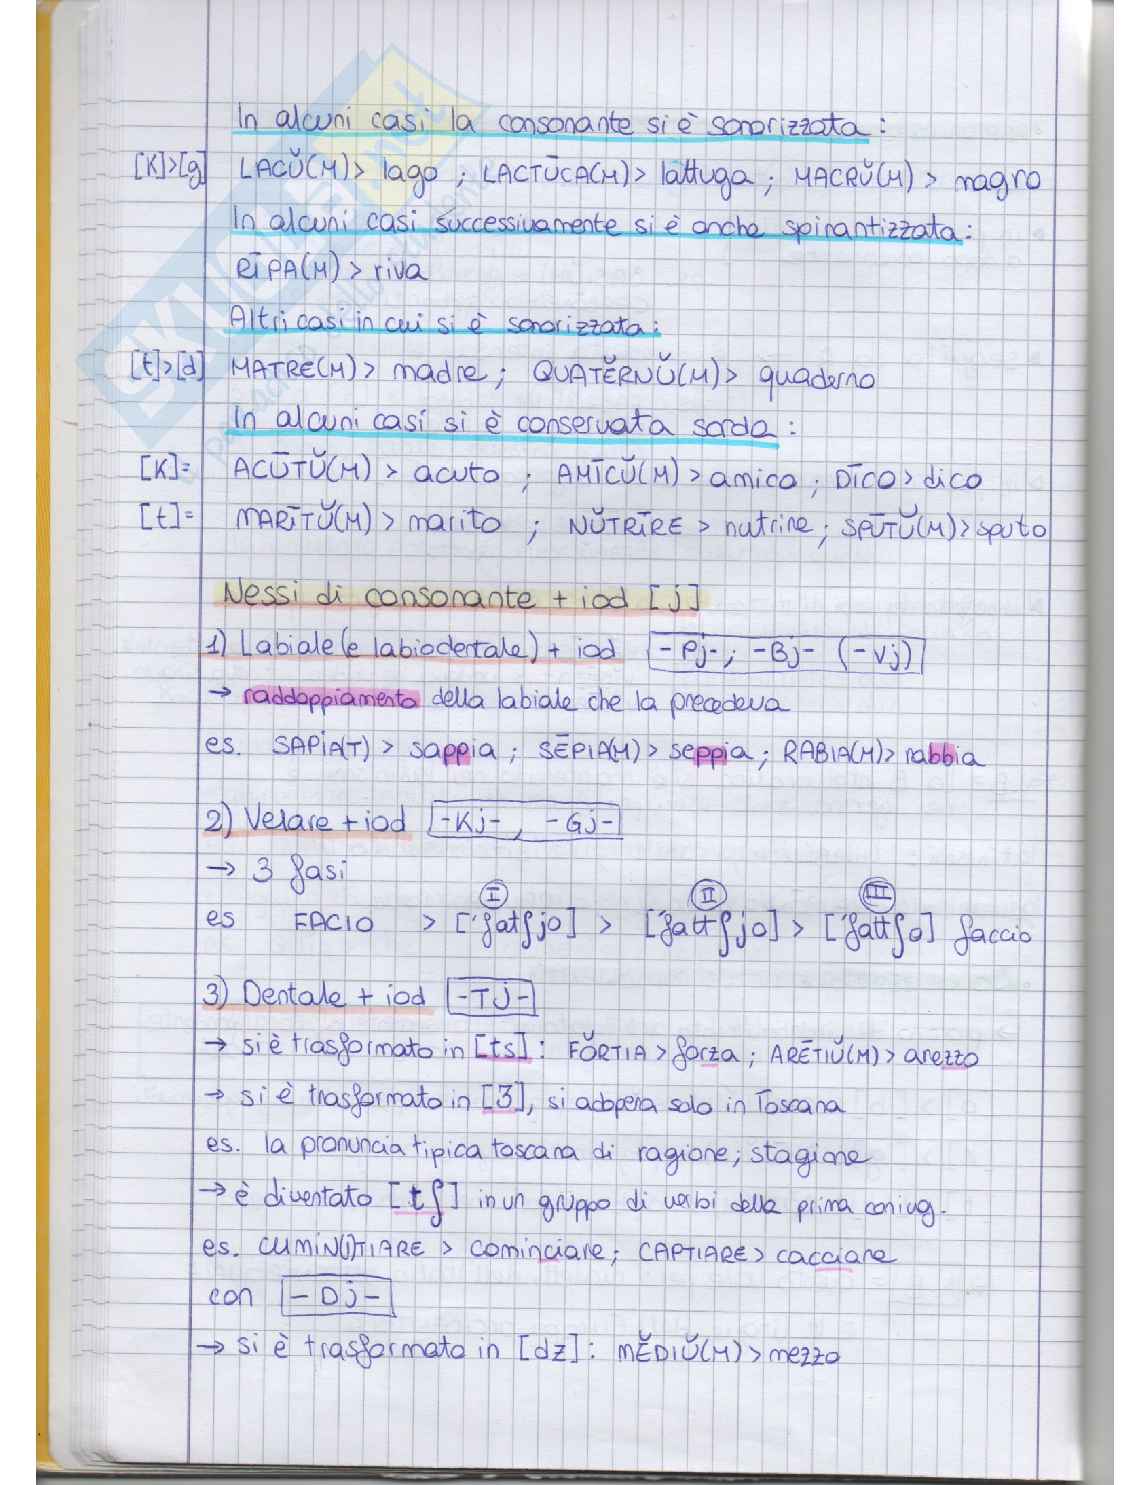 In alcuni casi la consonante si è sonorizzata:
[K]>[g] LACŬ(M)> lago ; LACTŪCA(M)> lattuga ; MACRŬ(M) > magro
In alcuni casi successivamente si è anche spirantizzata:
RĪPA(M) > riva
Altri casi in cui si è sonorizzata:
[t]>[d] MATRE(M) > madre ; QUATĔRNŬ(M)> quaderno
In alcuni casi si è conservata sorda :
[K]= ACŪTŬ(M) > acuto ; AMĪCŬ(M) > amico ; DĪCO > dico
[t]= MARĪTŬ(M) > marito ; NŬTRĪRE > nutrire ; SPŪTŬ(M)> sputo
Nessi di consonante + iod [j]
1) Labiale (e labiodentale) + iod -Pj-; -Bj- (-Vj)
→ raddoppiamento della labiale che la precedeva
es. SAPIA(T) > sappia ; SĒPIA(M) > seppia ; RABIA(M)> rabbia
2) Velare + iod -Kj-, -Gj-
→ 3 fasi
I II III
es FACIO > ['fatʃjo] > ['fattʃjo] > ['fattʃo] faccio
3) Dentale + iod -Tj-
→ si è trasformato in [ts] : FŎRTIA > forza ; ARĒTIŬ(M) > arezzo
→ si è trasformato in [ʒ], si adopera solo in Toscana
es. la pronuncia tipica toscana di ragione; stagione
→ è diventato [tʃ] in un gruppo di verbi della prima coniug.
es. CUMIN(I)TIARE > cominciare; CAPTIARE > cacciare
con -Dj-
→ si è trasformato in [dz] : MĔDIŬ(M) > mezzo